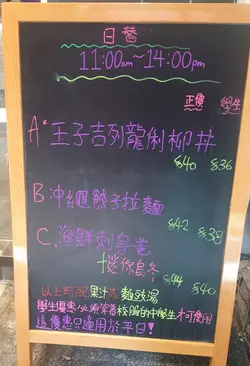 日替
11:00am~14:00pm
正價 學生
A* 王子吉列龍俐柳丼
$40 $36
B. 沖繩餃子拉麵
$42 $38
C. 海鮮刺身卷
+迷你烏冬
$44 $40
以上均配果汁或麵豉湯
學生優惠必須穿着校服的中學生才可使用
這優惠只適用於平日!